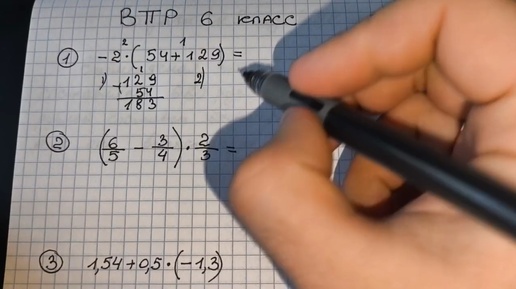 ВПР 6 класс
① -2·(54+129)=
1) 129 2)
+54
183
② (6/5 - 3/4)·2/3=
③ 1,54+0,5·(-1,3)